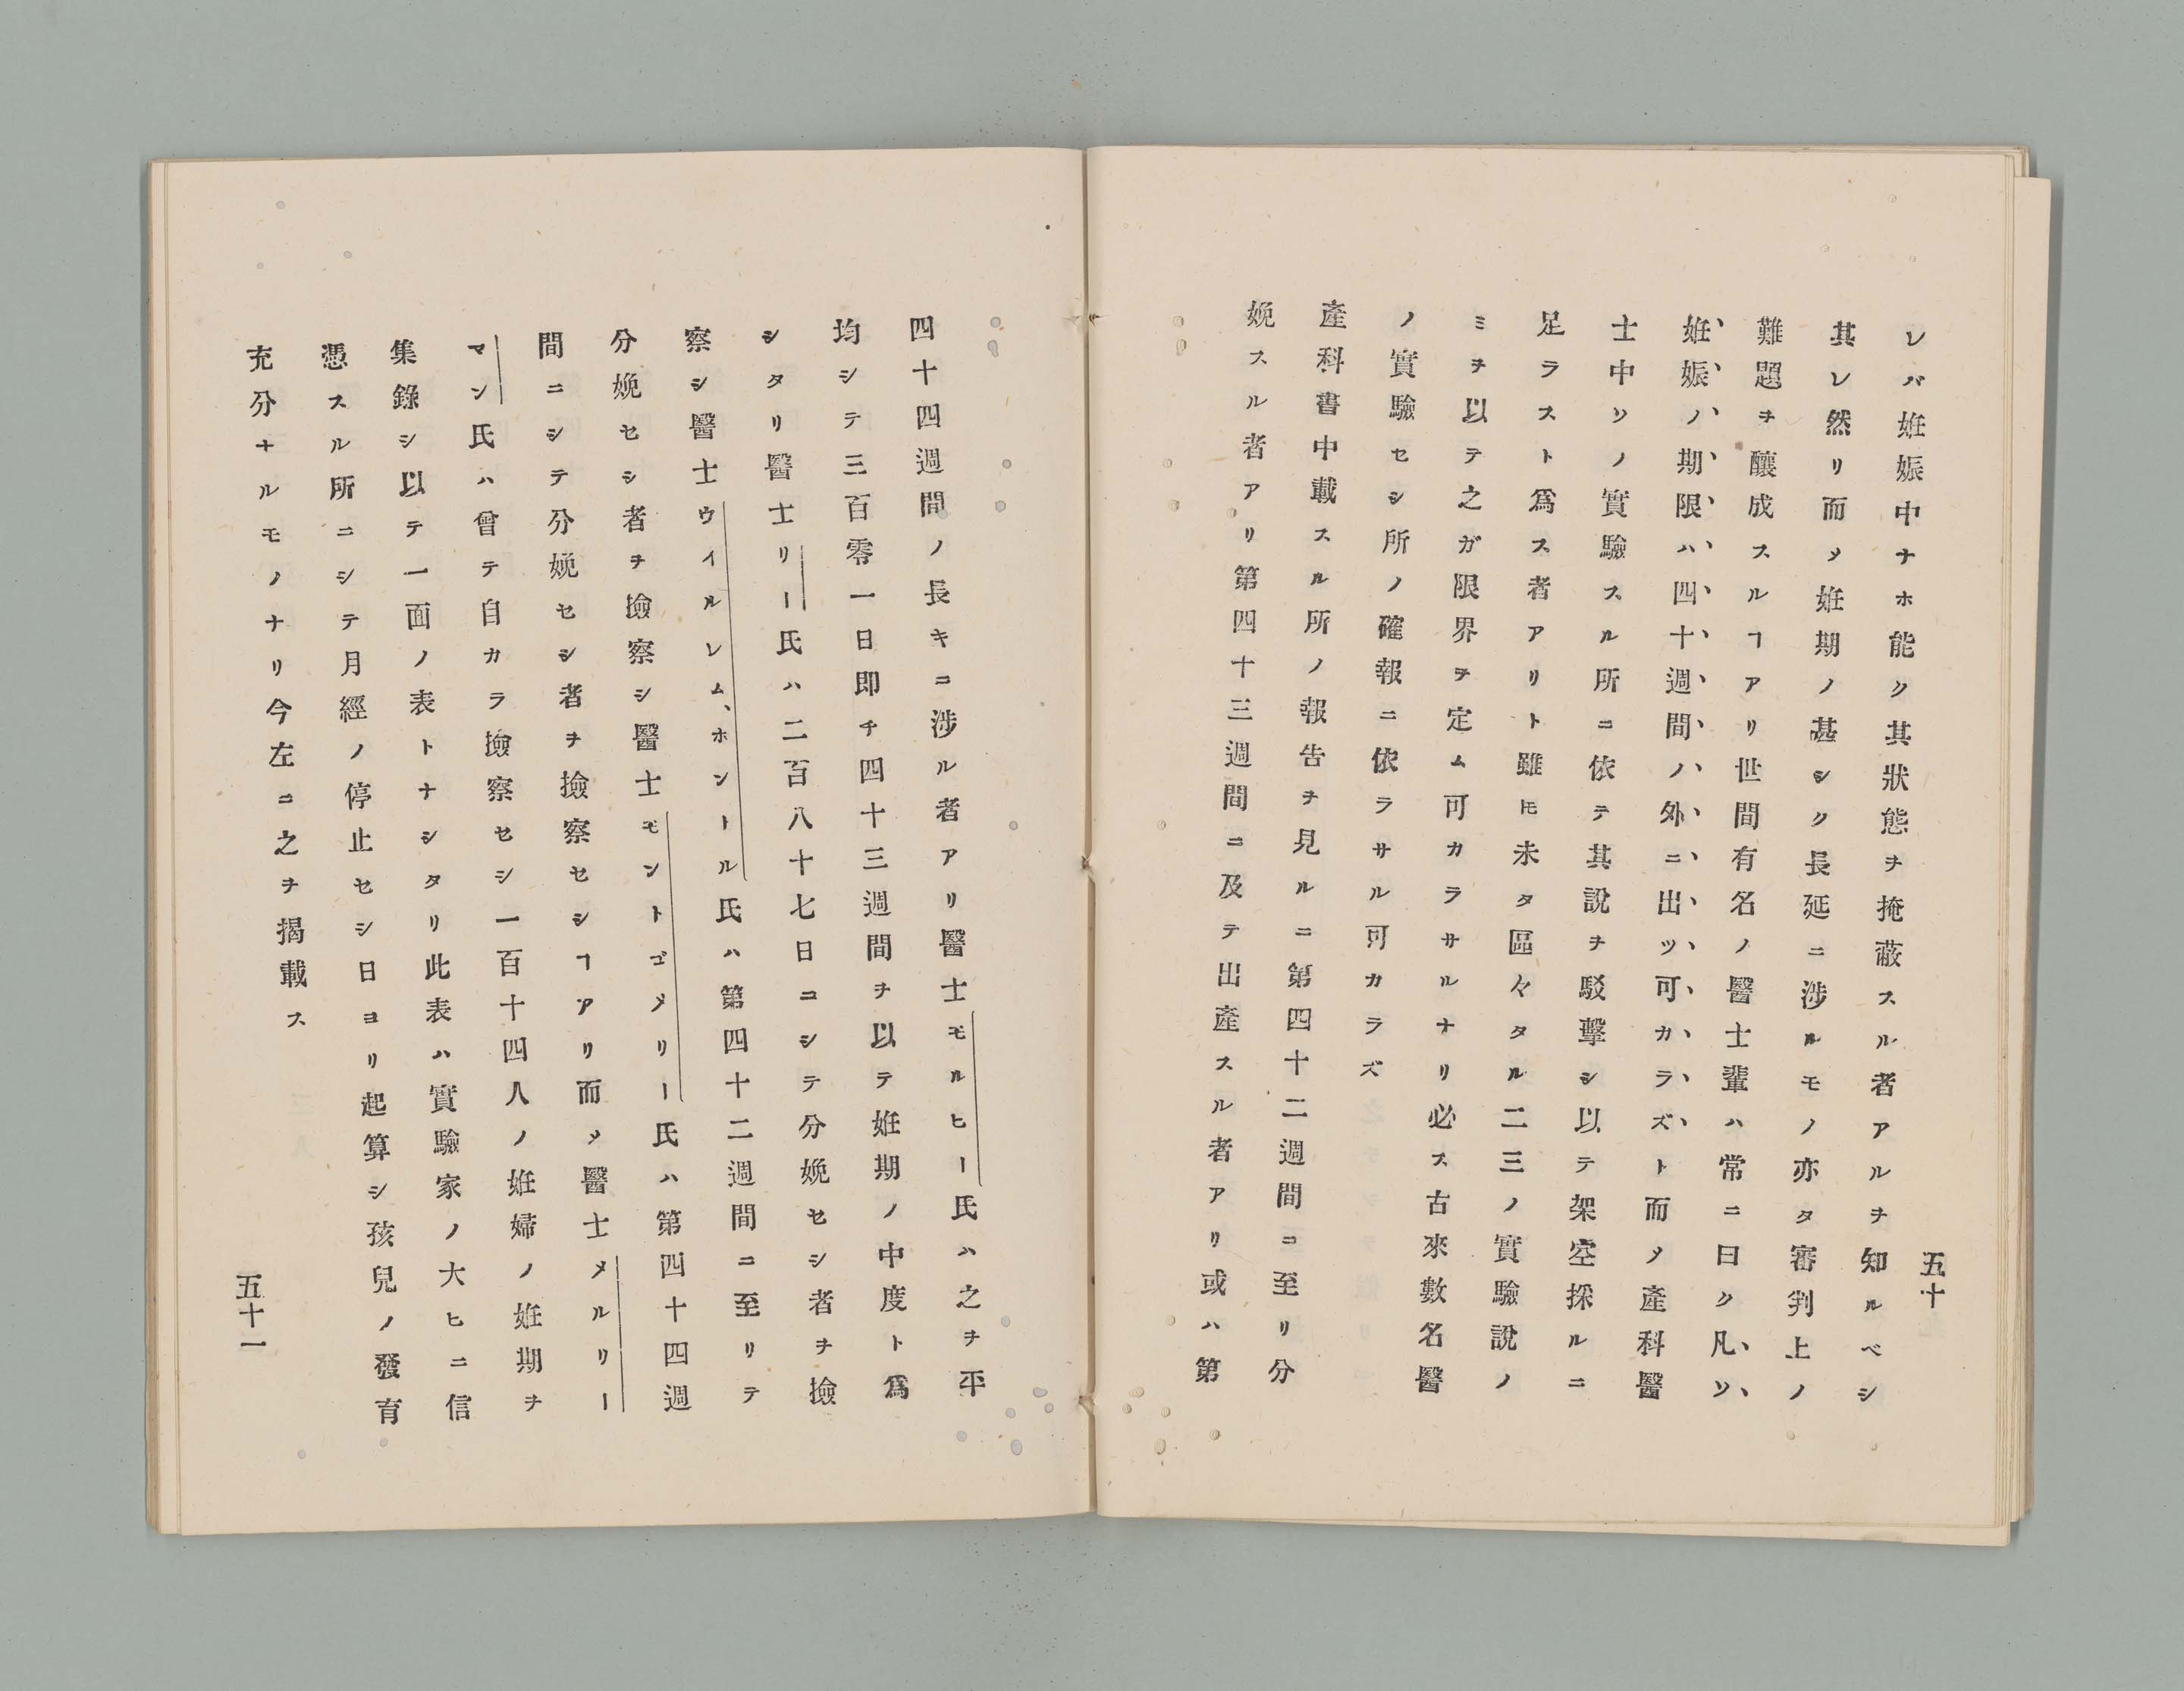 五十
レバ姙娠中ナホ能ク其狀態ヲ掩蔽スル者アルヲ知ルベシ
其レ然リ而〆姙期ノ甚シク長延ニ涉ルモノ亦タ審判上ノ
難題ヲ釀成スルヿアリ世間有名ノ醫士輩ハ常ニ曰ク凡ソ
姙娠ノ期限ハ四十週間ノ外ニ出ツ可カラズト而〆產科醫
士中ソノ實驗スル所ニ依テ其說ヲ駁擊シ以テ架空採ルニ
足ラスト爲ス者アリト雖𪜈未タ區々タル二三ノ實驗說ノ
ミヲ以テ之ガ限界ヲ定ム可カラサルナリ必ス古來數名醫
ノ實驗セシ所ノ確報ニ依ラサル可カラズ
產科書中載スル所ノ報告ヲ見ルニ第四十二週間ニ至リ分
娩スル者アリ第四十三週間ニ及テ出產スル者アリ或ハ第
四十四週間ノ長キニ涉ル者アリ醫士モルヒー氏ハ之ヲ平
均シテ三百零一日即チ四十三週間ヲ以テ姙期ノ中度ト爲
シタリ醫士リー氏ハ二百八十七日ニシテ分娩セシ者ヲ撿
察シ醫士ウイルレム、ホントル氏ハ第四十二週間ニ至リテ
分娩セシ者ヲ撿察シ醫士モントゴメリー氏ハ第四十四週
間ニシテ分娩セシ者ヲ撿察セシヿアリ而〆醫士メルリー
マン氏ハ曾テ自カラ撿察セシ一百十四人ノ姙婦ノ姙期ヲ
集錄シ以テ一面ノ表トナシタリ此表ハ實驗家ノ大ヒニ信
憑スル所ニシテ月經ノ停止セシ日ヨリ起算シ孩兒ノ發育
充分ナルモノナリ今左ニ之ヲ揭載ス
五十一